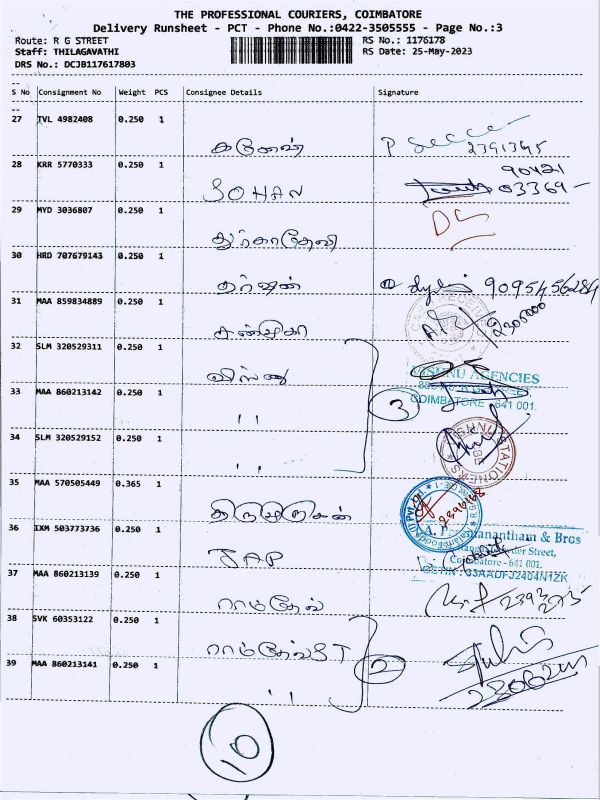 THE PROFESSIONAL COURIERS, COIMBATORE
Delivery Runsheet - PCT - Phone No.:0422-3505555 - Page No.:3
Route: R G STREET
RS No.: 1176178
Staff: THILAGAVATHI
RS Date: 25-May-2023
DRS No.: DCJB117617803
S No Consignment No Weight PCS Consignee Details Signature
27 TVL 4982408 0.250 1
கணேஷ்
2391345
28 KRR 5770333 0.250 1
SOHAN
90421
03369
29 MYD 3036807 0.250 1
துர்காதேவி
30 HRD 707679143 0.250 1
தர்ஷன்
9095456284
31 MAA 859834889 0.250 1
சண்முகி
2305000
32 SLM 320529311 0.250 1
விஷ்ணு
VISHNU AGENCIES
COIMBATORE - 641 001.
33 MAA 860213142 0.250 1
"
3
34 SLM 320529152 0.250 1
"
STATIONERS
35 MAA 570505449 0.365 1
திருமுருகன்
36 IXM 503773736 0.250 1
JAP
& Bros
Street,
Coimbatore - 641 001.
GSTIN : 33AADFJ2404N1ZK
37 MAA 860213139 0.250 1
ராம்தேவ்
38 SVK 60353122 0.250 1
ராம்தேவ் ST
2
39 MAA 860213141 0.250 1
"
10